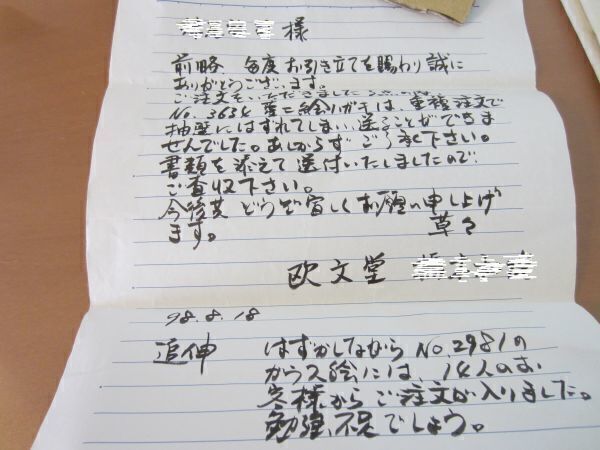 様
前略 毎度お引き立てを賜わり誠に
ありがとうございます。
ご注文をいただきました
No. 3634 蕗二絵ハガキは、重複注文で
抽選にはずれてしまい、送ることができま
せんでした。あしからずご了承下さい。
書類を添えて送付いたしましたので
ご査収下さい。
今後共どうぞ宜しくお願い申し上げ
ます。 草々
欧文堂
98.8.18
追伸 はずかしながらNo.2981の
ガラス絵には、14人のお
客様からご注文が入りました。
勉強不足でしょう。